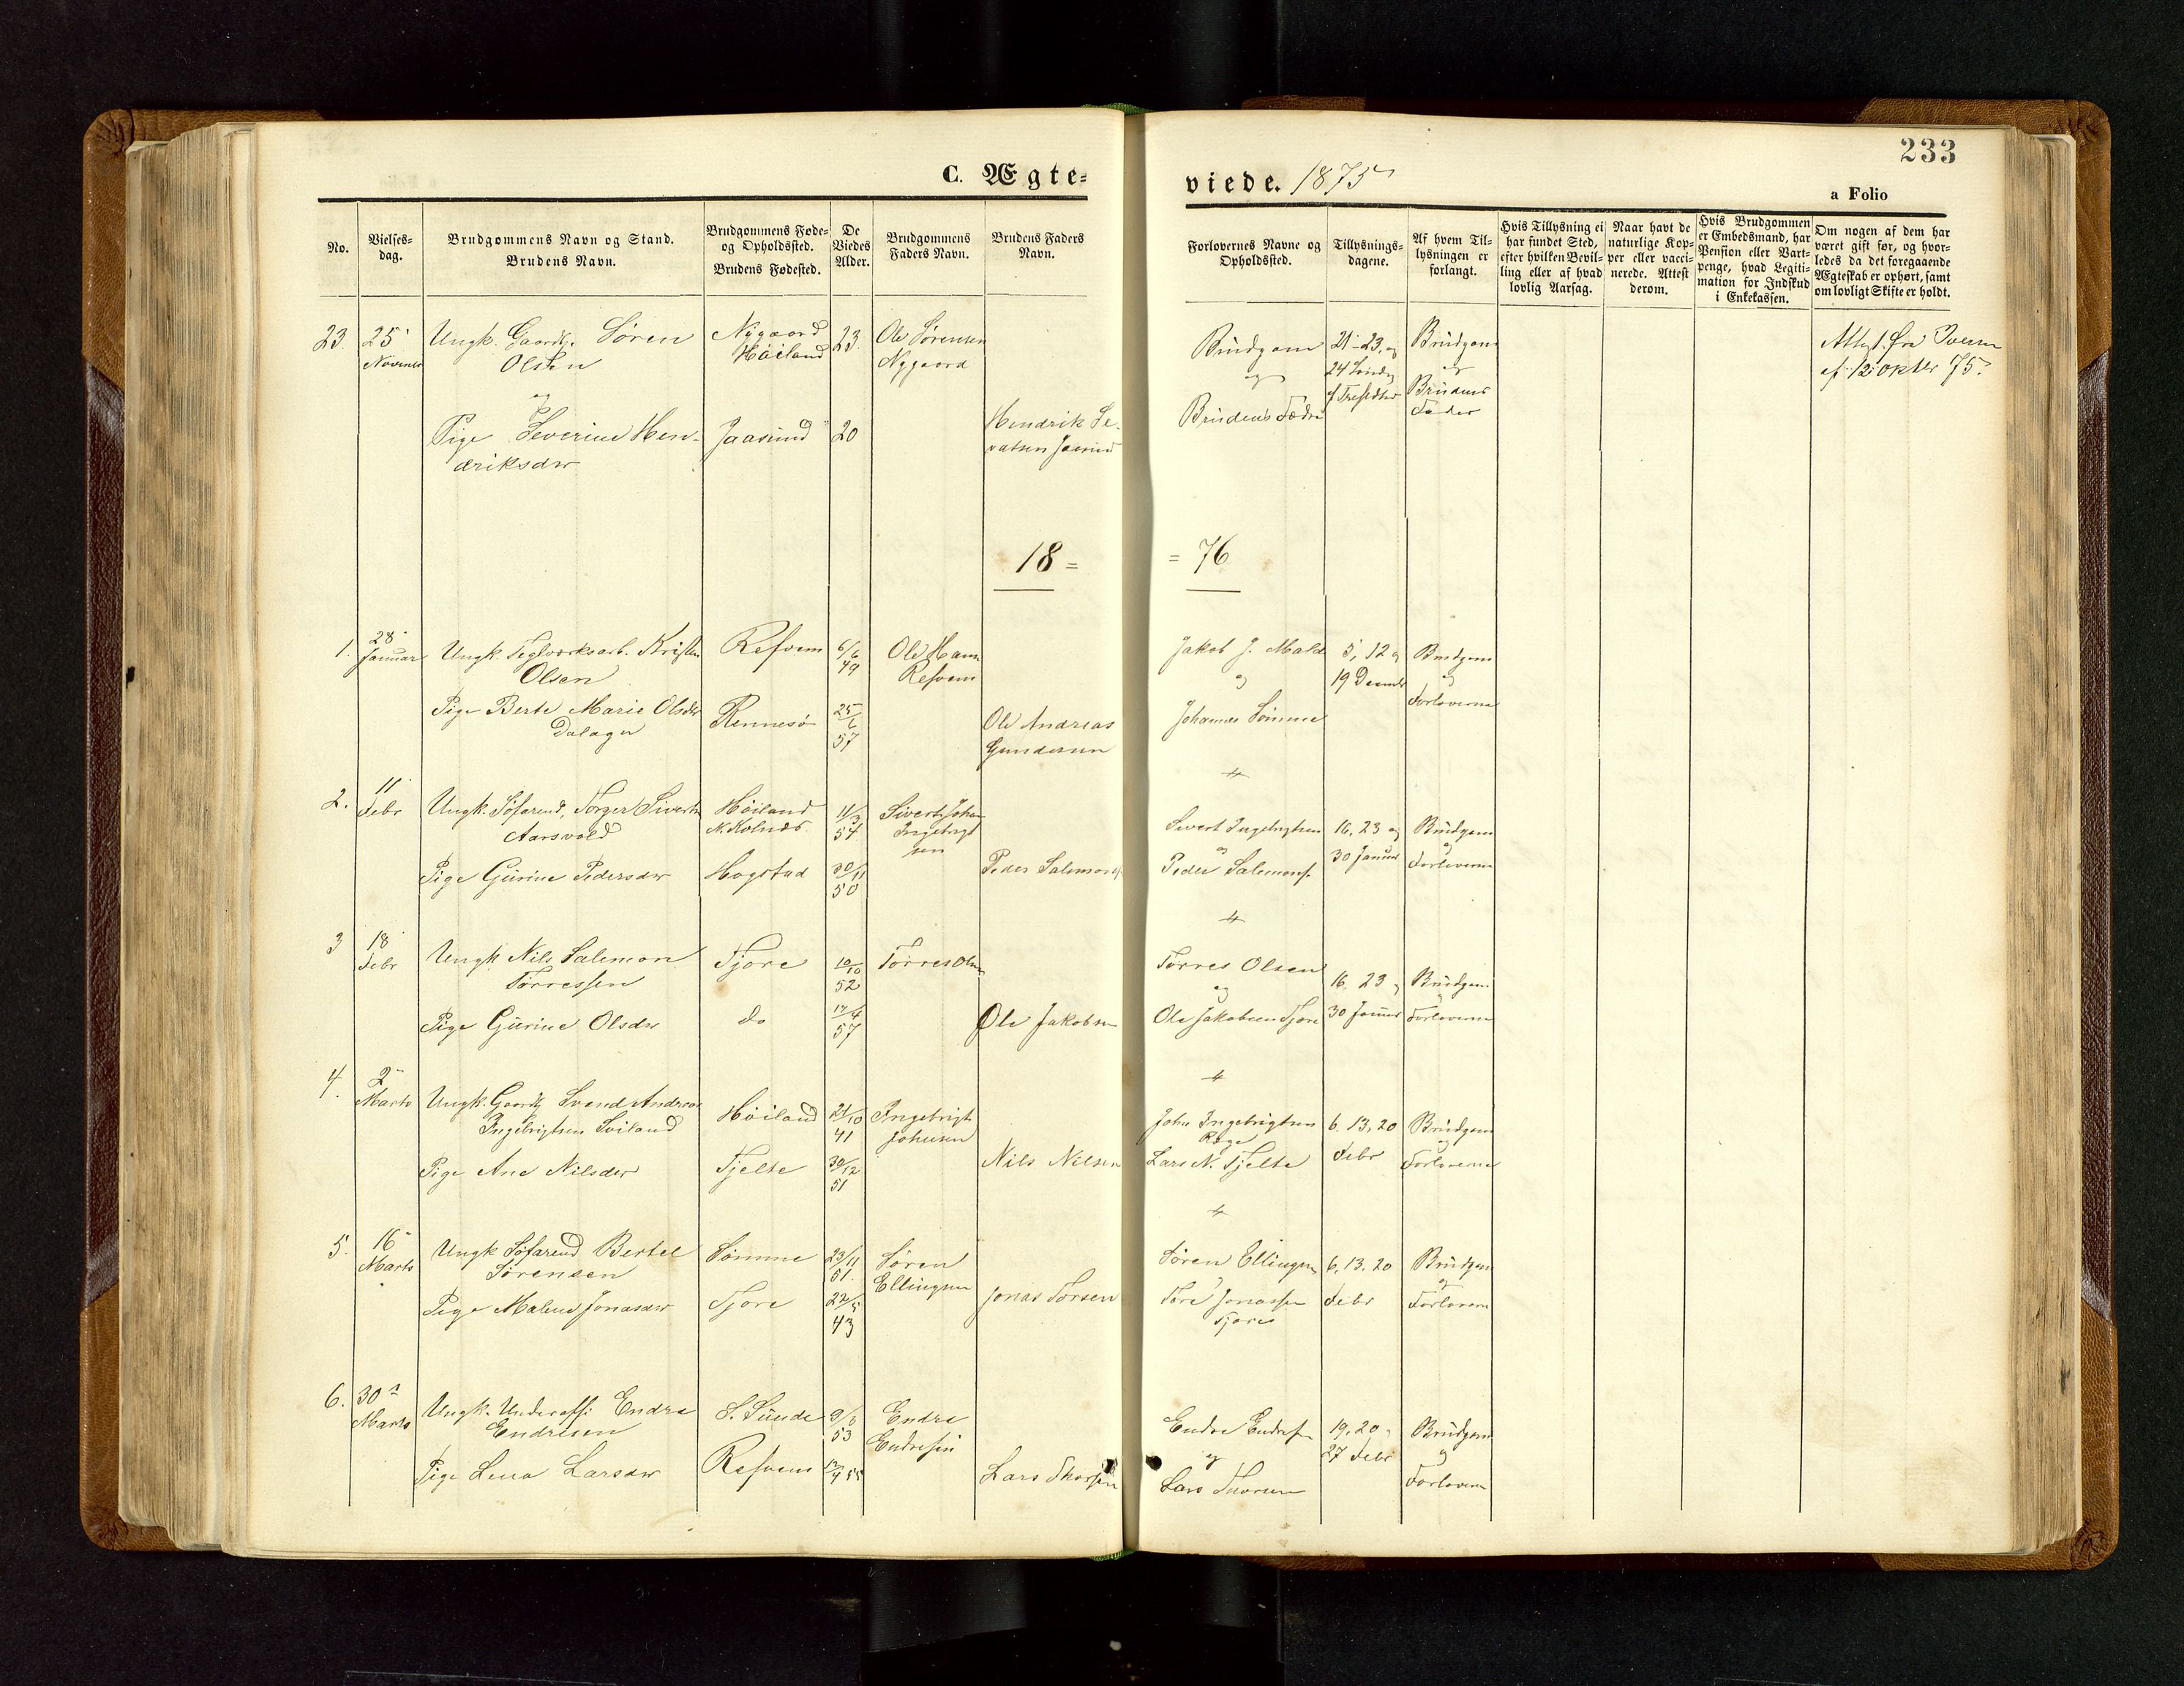 233
C. Ægte-
viede. 1875
a Folio
No.
Vielses-
dag.
Brudgommens Navn og Stand.
Brudens Navn.
Brudgommens Føde-
og Opholdssted.
Brudens Fødested.
De
Viedes
Alder.
Brudgommens
Faders Navn.
Brudens Faders
Navn.
Forlovernes Navne og
Opholdssted.
Tillysnings-
dagene.
Af hvem Til-
lysningen er
forlangt.
Hvis Tillysning ei
har fundet Sted,
efter hvilken Bevil-
ling eller af hvad
lovlig Aarsag.
Naar havt de
naturlige Kop-
per eller vacci-
nerede. Attest
derom.
Hvis Brudgommen
er Embedsmand, har
Pension eller Vart-
penge, hvad Legiti-
mation for Indskud
i Enkekassen.
Om nogen af dem har
været gift før, og hvor-
ledes da det foregaaende
Ægteskab er ophørt, samt
om lovligt Skifte er holdt.
23.
25
Ungk. Gaardbr. Søren
Olsen
og
Pige Severine Hen-
driksdtr
Nygaard
Høiland
Jaasund
23
20
Ole Sørensen
Nygaard
Hendrik Se-
Brudgom
og
Brudens Fader
21-23, og
Brudgom
og
Brudens
Fader
Attest fra
af 12 okttbr 75.
18 =
= 76
1.
28
Januar
Ungk. Teglværksarb. Kristen
Olsen
Pige Berte Marie Olsdtr
Dalager
Refvem
Rennesø
6/6
49
25
6
57
Ole Hans
Refvem
Ole Andreas
Gundersen
Jakob J. Malde
og
Johannes Sømme
5, 12 og
19 Decembr
Brudgom
og
Forloverne
2.
11
Febr
Ungk. Søfarend, Torger Sivertsen
Aarsvold
Pige Gurine Pedersdtr
Høiland
Hogstad
11/3
54
30/11
50
Sivert Johan
Ingebrigt
sen
Peder Salemons.
Sivert Ingebrigtsen
og
Peder Salemons.
16, 23 og
30 Januar
Brudgom
og
Forloverne
3
18
Febr
Ungk Nils Salemon
Torressen
Pige Gurine Olsdtr
Tjore
do
10/10
52
17/4
57
Torres Olsen
Ole Jakobsen
Torres Olsen
og
Ole Jakobsen Tjore
16, 23 og
30 Januar
Brudgom
og
Forloverne
4.
2
Marts
Ungk. Gaardbr Svend Andreas
Ingebrigtsen Sviland
Pige Ane Nilsdtr
Høiland
Tjelte
21/10
41
30/12
51
Ingebrigt
Johnsen
Nils Nilsen
John Ingebrigtsen
Røge
Lars N. Tjelte
6. 13, 20
Febr
Brudgom
og
Forloverne
5.
16
Marts
Ungk Søfarend Bertel
Sørensen
Pige Malene Jonasdtr
Sømme
Tjore
23/11
51.
22/5
43
Søren
Ellingsen
Jonas Torsen
Søren Ellingsen
Tore Jonassen
Tjore
6. 13. 20
Febr
Brudgom
og
Forlovern
6.
30
Marts
Ungk. Underoffi Endre
Endresen
Pige Lena Larsdtr
S. Sunde
Refvem
9/8
53
Endre
Endresen
Lars Thorsen
Endre Endresen
og
Lars Thorsen
19, 20 og
27 Febr
Brudgom
og
Forlovern